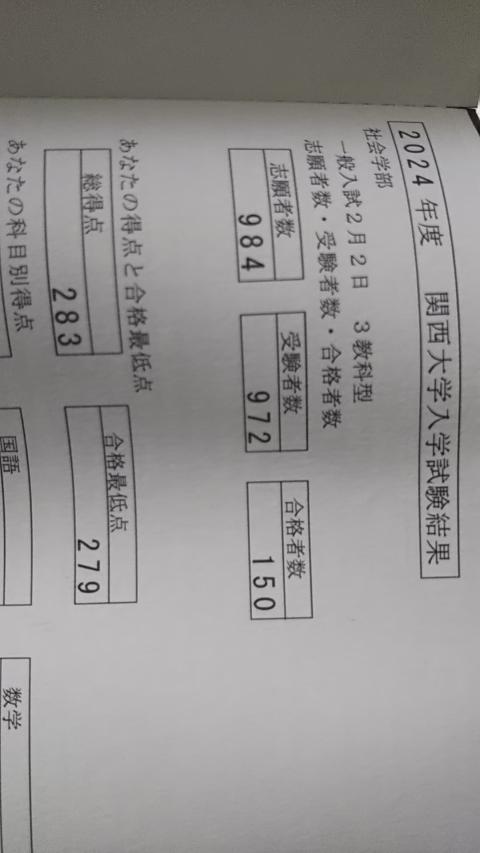 2024年度　関西大学入学試験結果
社会学部
一般入試2月2日　3教科型
志願者数・受験者数・合格者数
志願者数　受験者数　合格者数
984　972　150
あなたの得点と合格最低点
総得点　合格最低点
283　279
あなたの科目別得点
国語　数学